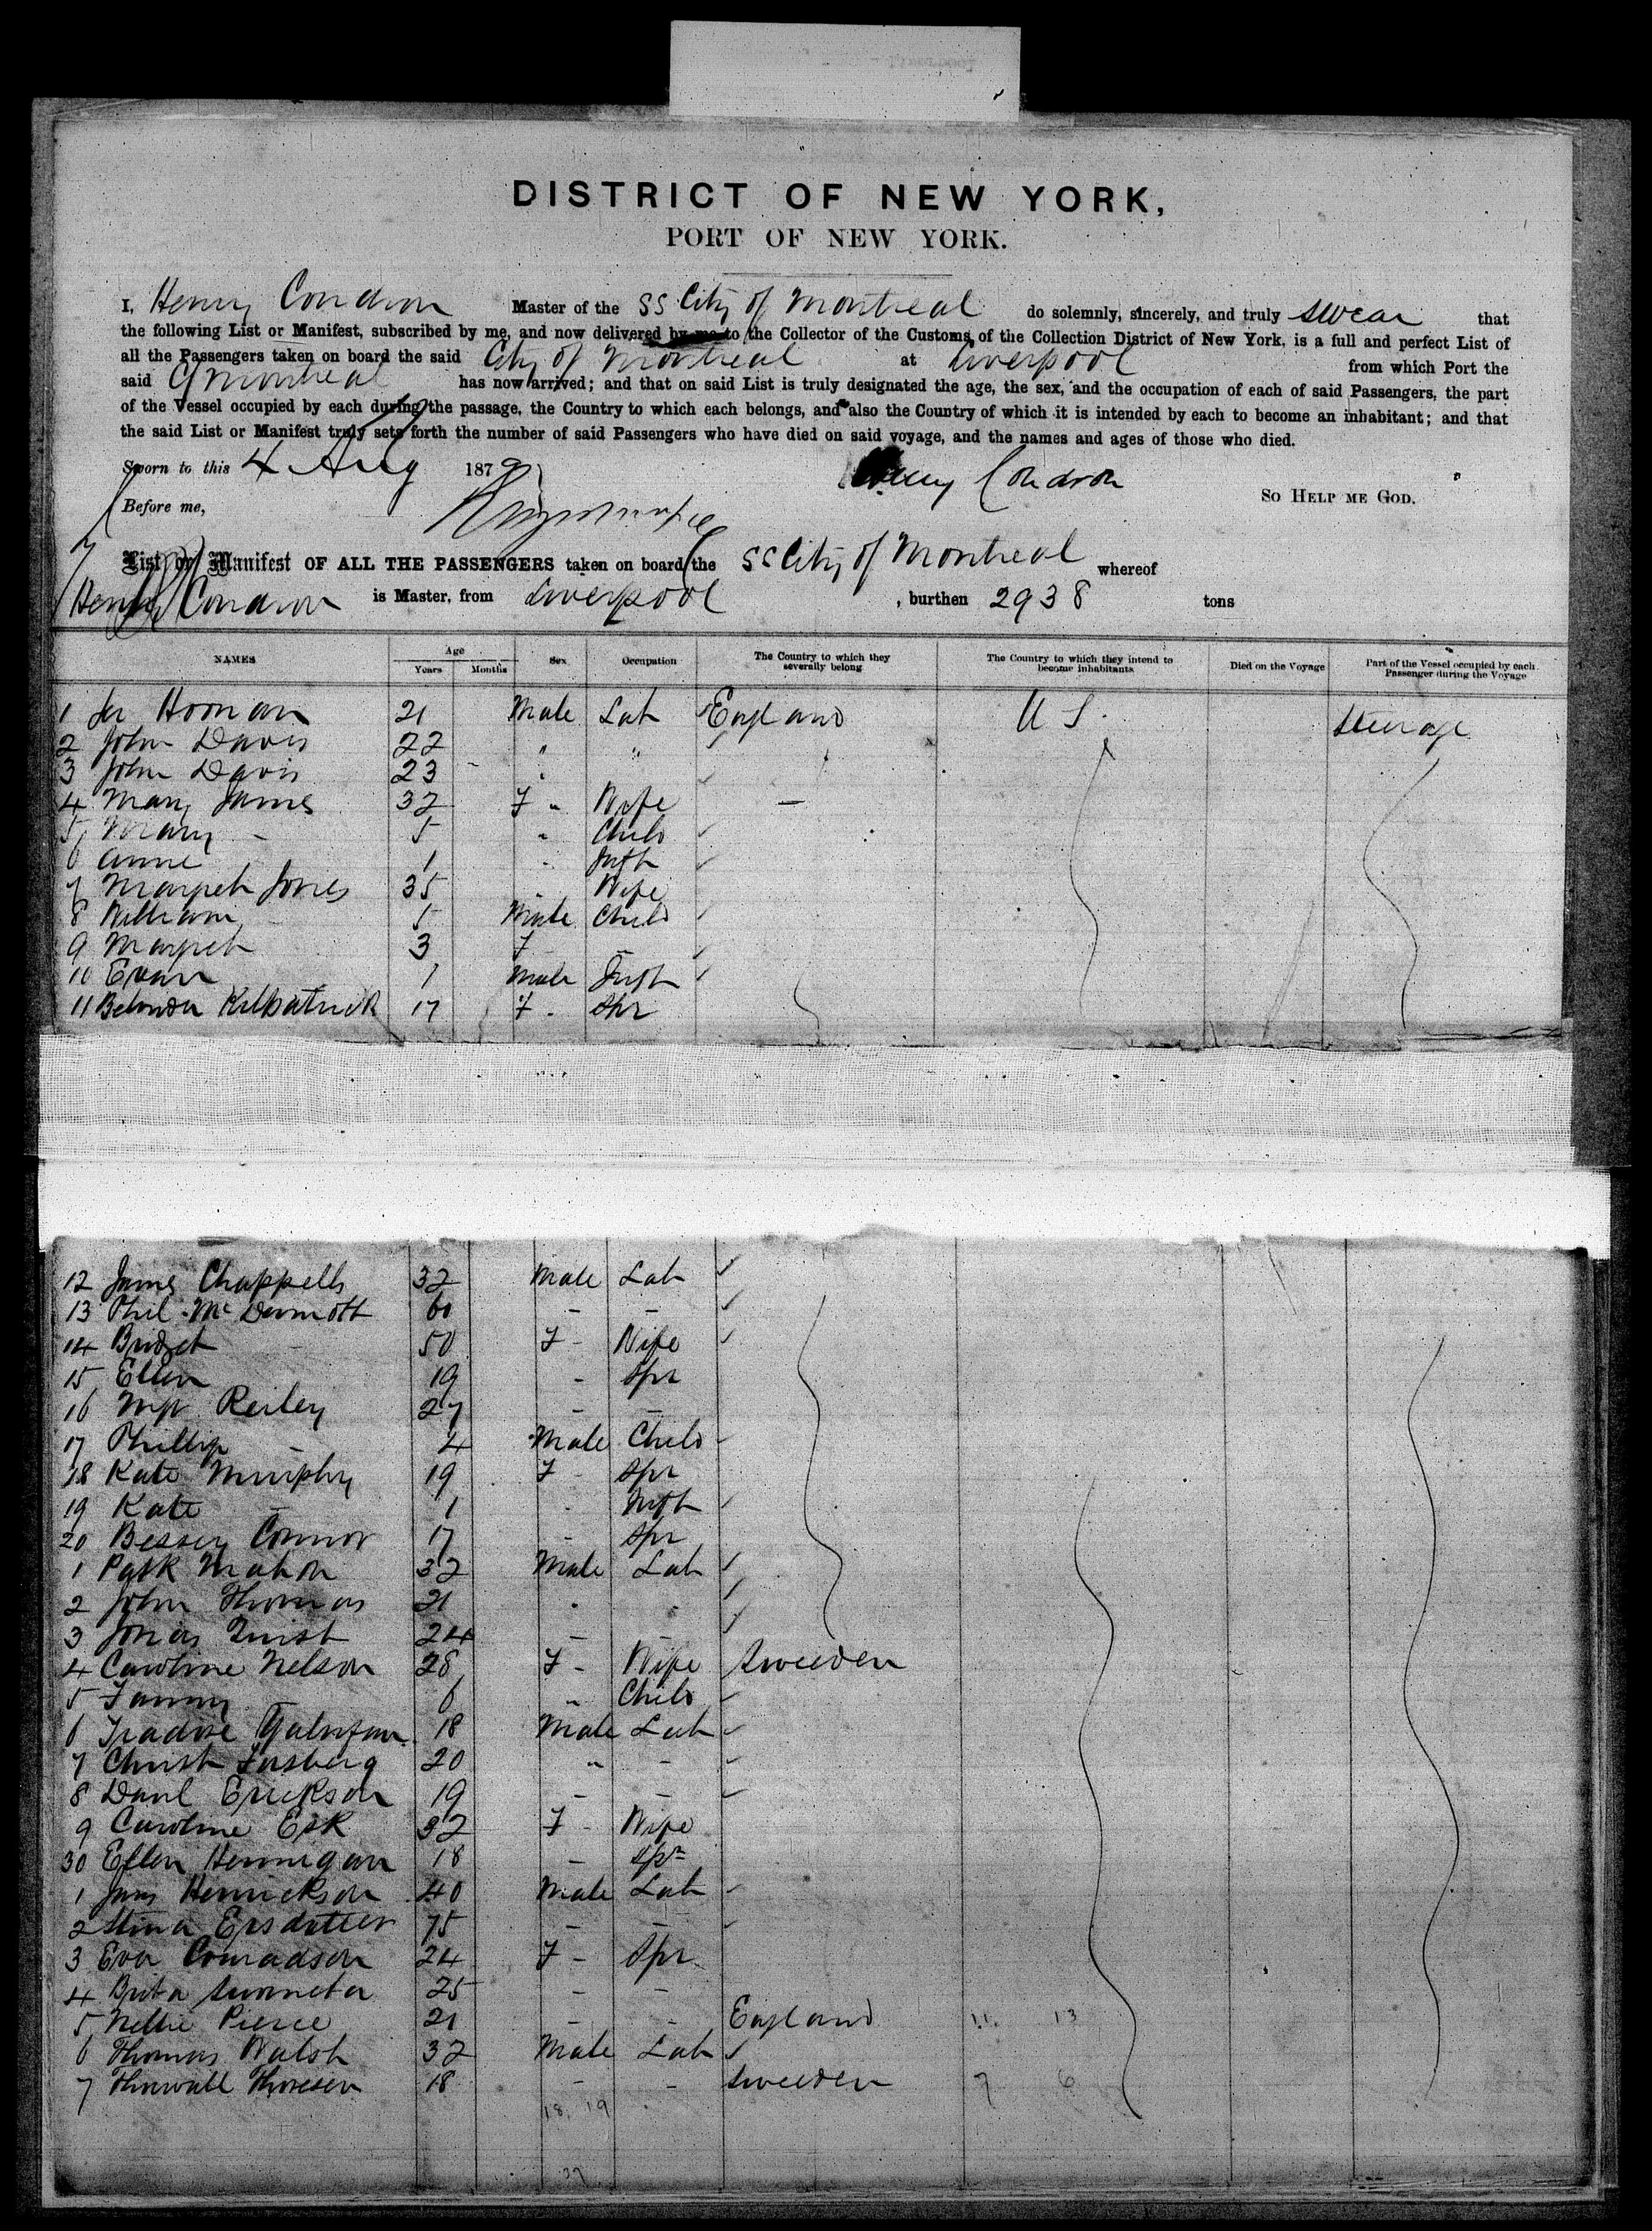 DISTRICT OF NEW YORK,
PORT OF NEW YORK.
I, Henry Condron Master of the SS City of Montreal do solemnly, sincerely, and truly swear that
the following List or Manifest, subscribed by me, and now delivered by me to the Collector of the Customs of the Collection District of New York, is a full and perfect List of
all the Passengers taken on board the said City of Montreal at Liverpool from which Port the
said C Montreal has now arrived; and that on said List is truly designated the age, the sex, and the occupation of each of said Passengers, the part
of the Vessel occupied by each during the passage, the Country to which each belongs, and also the Country of which it is intended by each to become an inhabitant; and that
the said List or Manifest truly sets forth the number of said Passengers who have died on said voyage, and the names and ages of those who died.
Sworn to this 4 Aug 1879 Henry Condron
Before me, SO HELP ME GOD.
List or Manifest OF ALL THE PASSENGERS taken on board the SS City of Montreal whereof
Henry Condron is Master, from Liverpool, burthen 2938 tons
NAMES Age Years Months Sex Occupation The Country to which they severally belong The Country to which they intend to become inhabitants Died on the Voyage Part of the Vessel occupied by each Passenger during the Voyage
1 Jer Hoonan 21 Male Lab England U S. Steerage
2 John Davis 22 " "
3 John Davis 23 "
4 Mary James 32 F " Wife –
5 Mary – 5 " Child
6 Anne 1 " Inft
7 Margret Jones 35 " Wife
8 William 5 Male Child
9 Margret 3 F –
10 Evan 1 Male Inft
11 Belinda Kilpatrick 17 F - Spr
12 James Chappells 32 Male Lab
13 Phil McDermott 60 – –
14 Bridget – 50 F - Wife
15 Ellen 19 - Spr
16 Mgt Reiley 27 – –
17 Phillip – 4 Male Child
18 Kate Murphy 19 F - Spr
19 Kate – 1 - Inft
20 Bessey Connor 17 - Spr
1 Patk Mahon 32 Male Lab
2 John Thomas 21 " "
3 Jonas Quist 24 – –
4 Caroline Nelson 28 F - Wife Sweeden
5 Fanny 6 " Child
6 18 Male Lab
7 Christ 20 " –
8 Danl Erickson 19 – –
9 Caroline Esk 32 F - Wife
30 Ellen Hennigan 18 – Spr
1 Jans Henrickson 40 Male Lab
2 Stina Ersdotter 75 – –
3 Eva Conradson 24 F - Spr
4 Brita 25 – –
5 Nellie Pierce 21 – – England 11. 13
6 Thomas Walsh 32 Male Lab
7 Thorwall Thoresen 18 – – Sweeden 7 6
18, 19
37